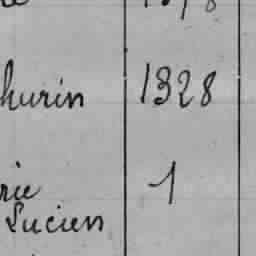 hurin 1328
rie 1
Lucien